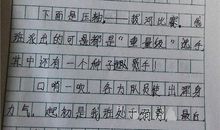 下面是压轴——拔河比赛，各
班派出的可是都是“重量级”选手
其中还有一个种子选手！
口哨一吹，各方队员使出浑身
力气，起初是我班处于弱势，最后